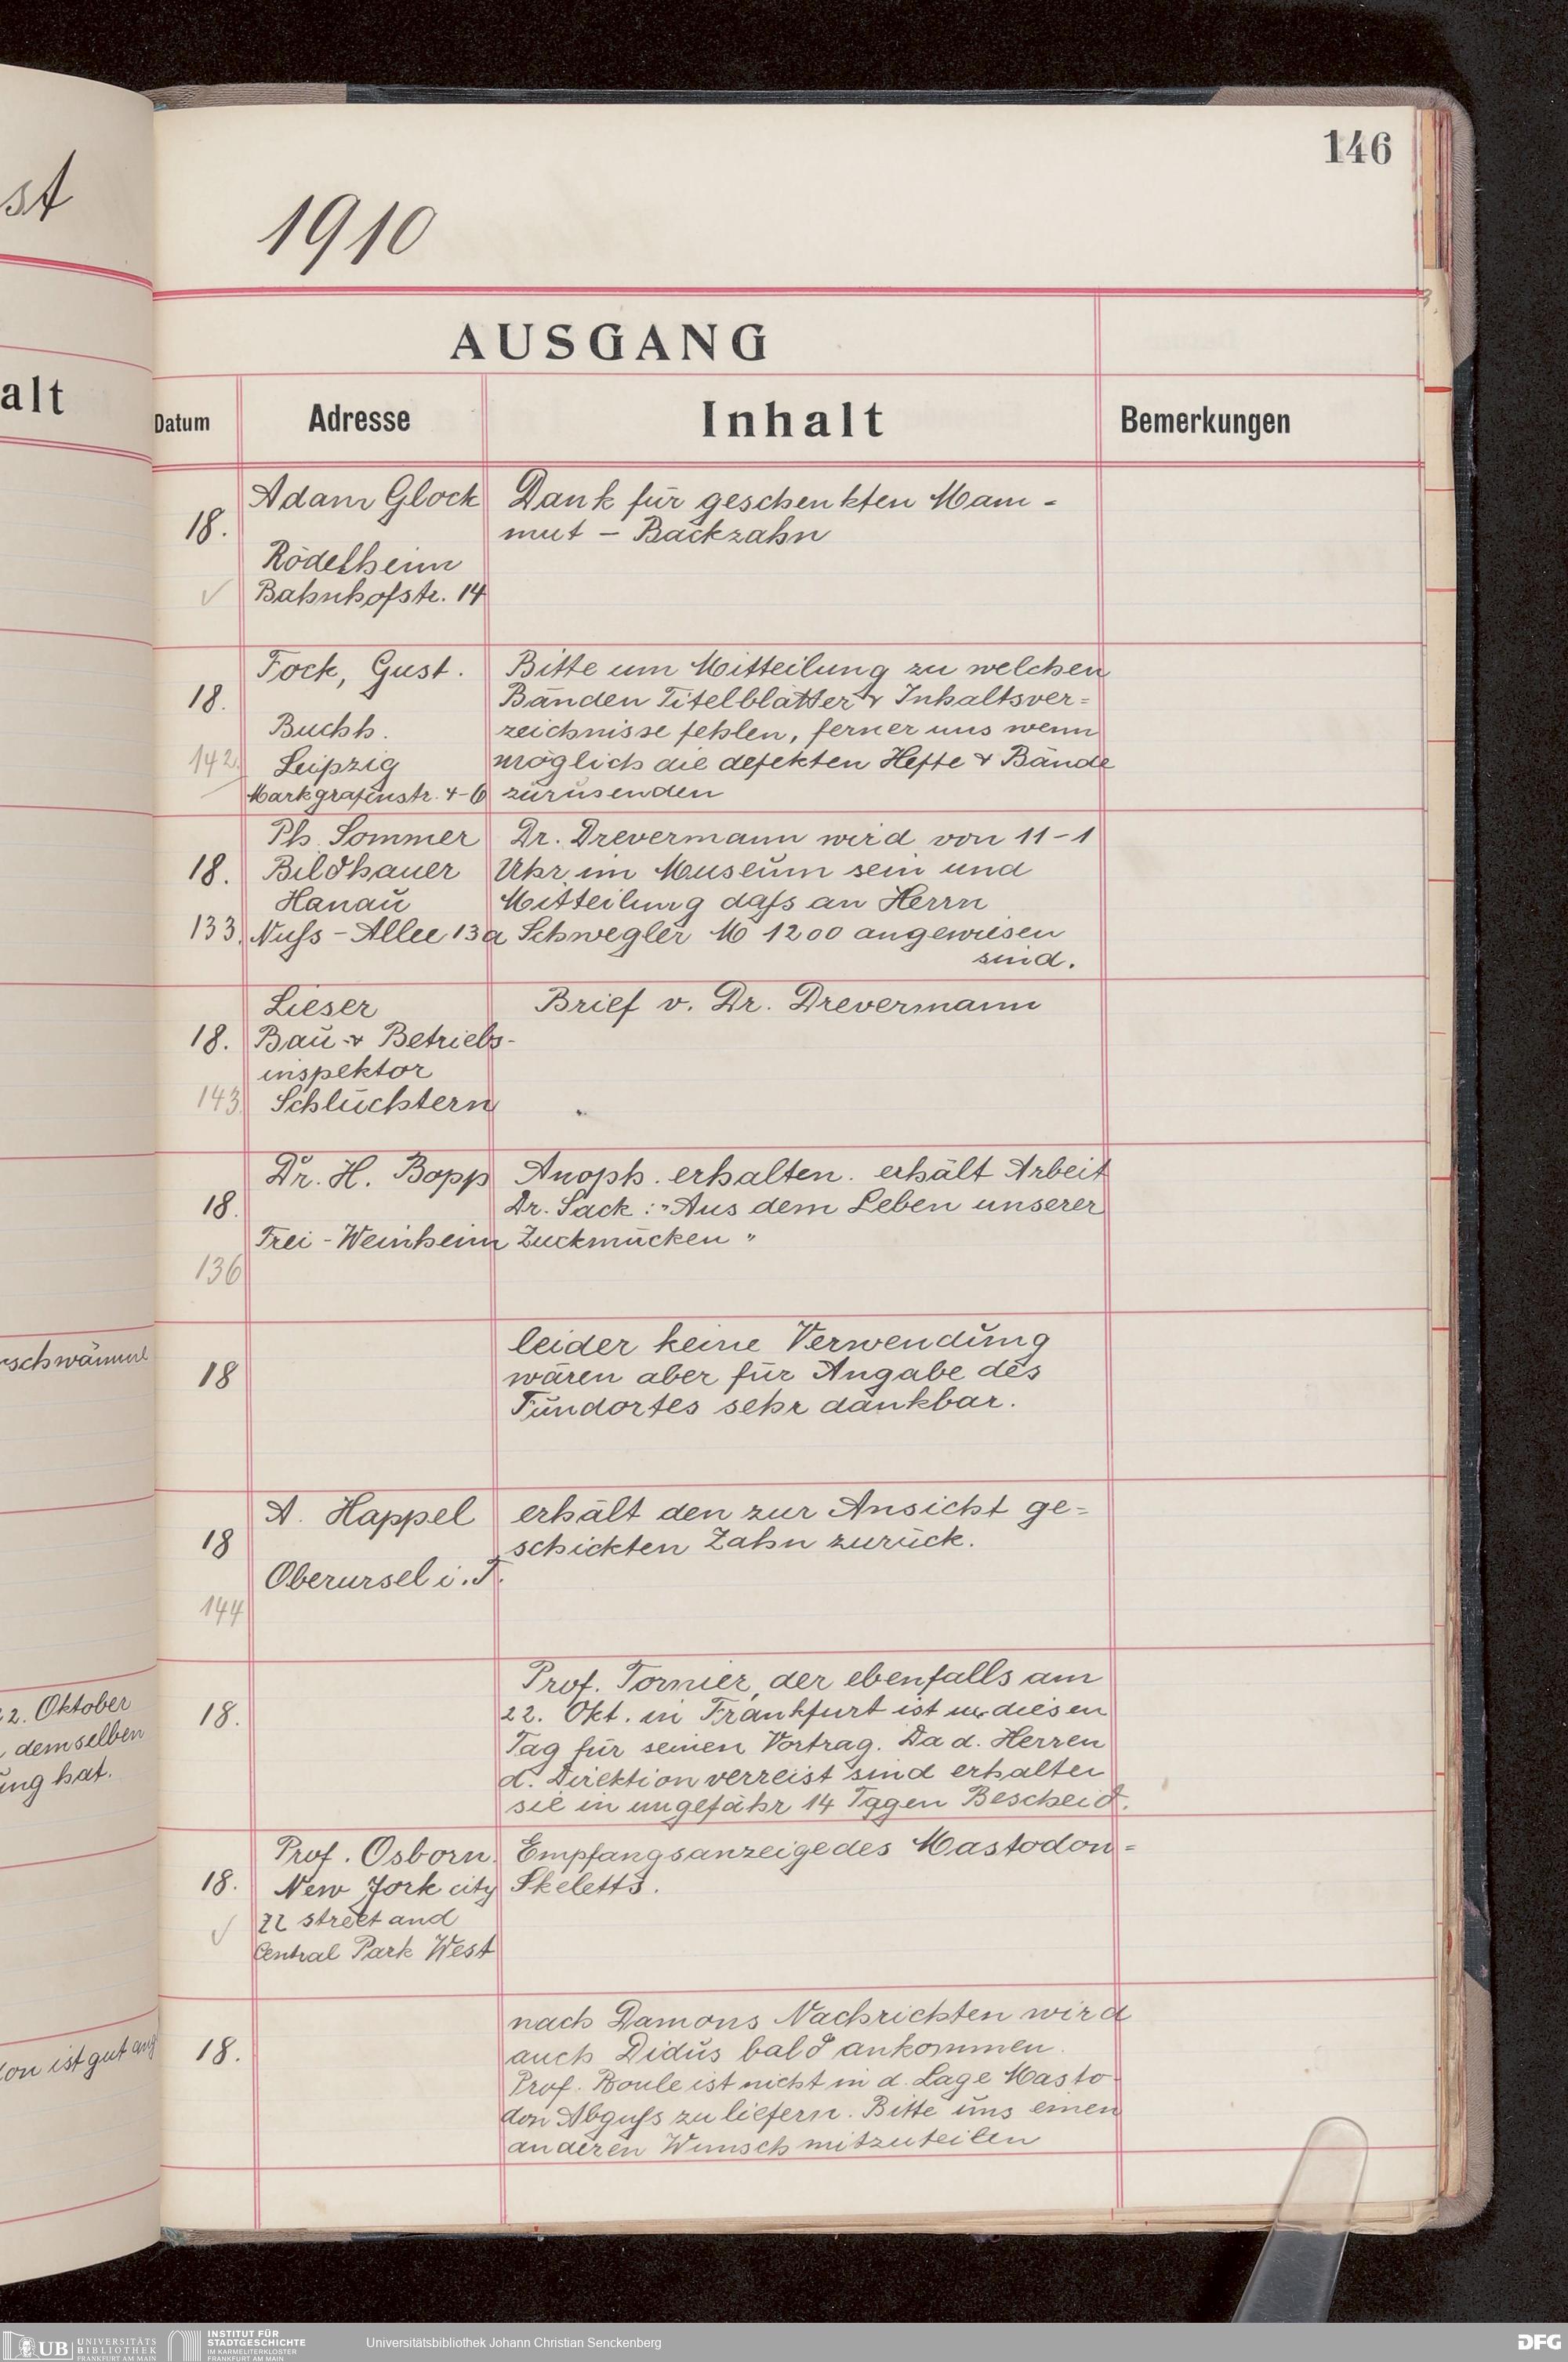 st
alt
rschwämme
22. Oktober
demselben
ung hat.
don ist gut ang
146
1910
AUSGANG
Datum Adresse Inhalt Bemerkungen
Adam Glock Dank für geschenkten Mam-
18. mut - Backzahn
Rödelheim
✓ Bahnhofstr. 14
Fock, Gust. Bitte um Mitteilung zu welchen
18. Bänden Titelblätter & Inhaltsver=
Buchh. zeichnisse fehlen, ferner uns wenn
142. Leipzig möglich die defekten Hefte & Bände
Markgrafenstr. 4-6 zurüsenden
Ph. Sommer Dr. Drevermann wird von 11-1
18. Bildhauer Uhr im Museum sein und
Hanau Mitteilung dafs an Herrn
133. Nufs-Allee 13a Schwegler M 1200 angewiesen
sind.
Lieser Brief v. Dr. Drevermann
18. Bau & Betriebs-
inspektor
143. Schlüchtern
Dr. H. Bopp Anoph. erhalten. erhält Arbeit
18. Dr. Sack: "Aus dem Leben unserer
Frei-Weinheim Zuckmücken"
136
leider keine Verwendung
18 wären aber für Angabe des
Fundortes sehr dankbar.
A. Happel erhält den zur Ansicht ge=
18 schickten Zahn zurück.
Oberursel i. T.
144
Prof. Tornier, der ebenfalls am
18. 22. Okt. in Frankfurt ist diesen
Tag für seinen Vortrag. Da d. Herren
d. Direktion verreist sind erhalten
sie in ungefähr 14 Tagen Bescheid.
Prof. Osborn. Empfangsanzeige des Mastodon=
18. New York city Skeletts.
✓ 77 street and
Central Park West
nach Damons Nachrichten wird
18. auch Didus bald ankommen.
Prof. Boule ist nicht in d. Lage Masto-
don Abgufs zu liefern. Bitte uns einen
anderen Wunsch mitzuteilen
UB UNIVERSITÄTS BIBLIOTHEK FRANKFURT AM MAIN
INSTITUT FÜR STADTGESCHICHTE IM KARMELITERKLOSTER FRANKFURT AM MAIN
Universitätsbibliothek Johann Christian Senckenberg
DFG